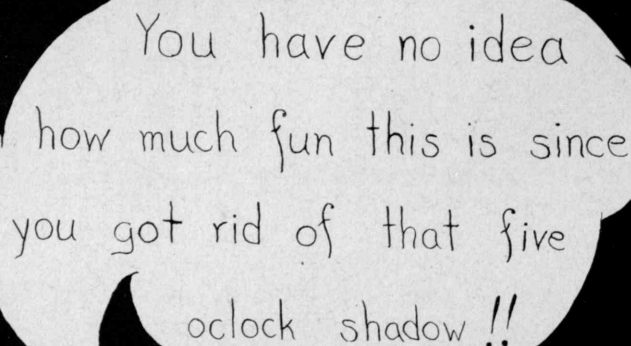 You have no idea
how much fun this is since
you got rid of that five
oclock shadow!!